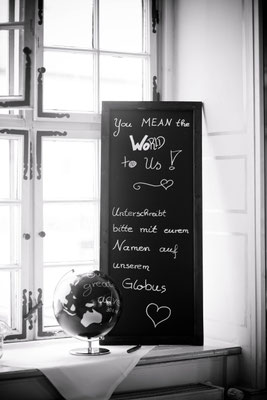 You MEAN the
WORLD
to Us!
Unterschreibt
bitte mit eurem
Namen auf
unserem
Globus
great